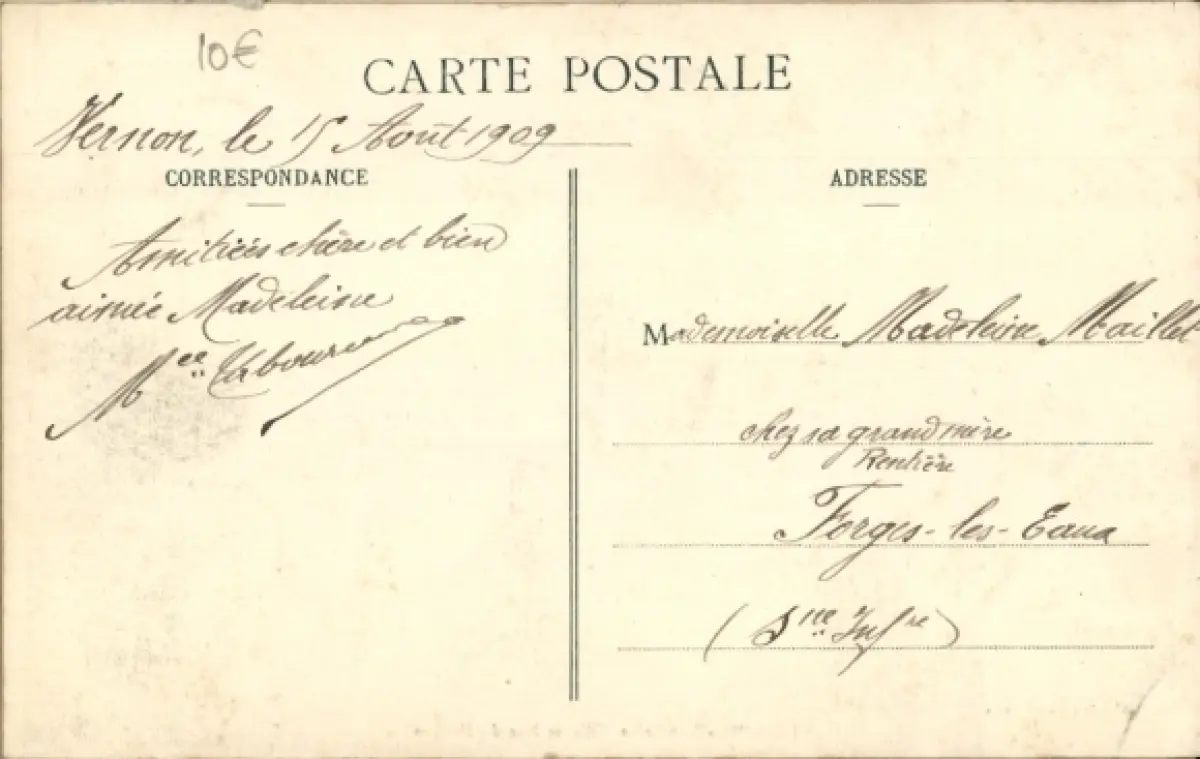 10€
CARTE POSTALE
Vernon, le 15 Août 1909
CORRESPONDANCE
Amitiées chère et bien
aimée Madeleine
Mee
ADRESSE
Mademoiselle Madeleine Maillet
chez sa grand mère
Rentière
Forges-les-Eaux
(Sne Infre)